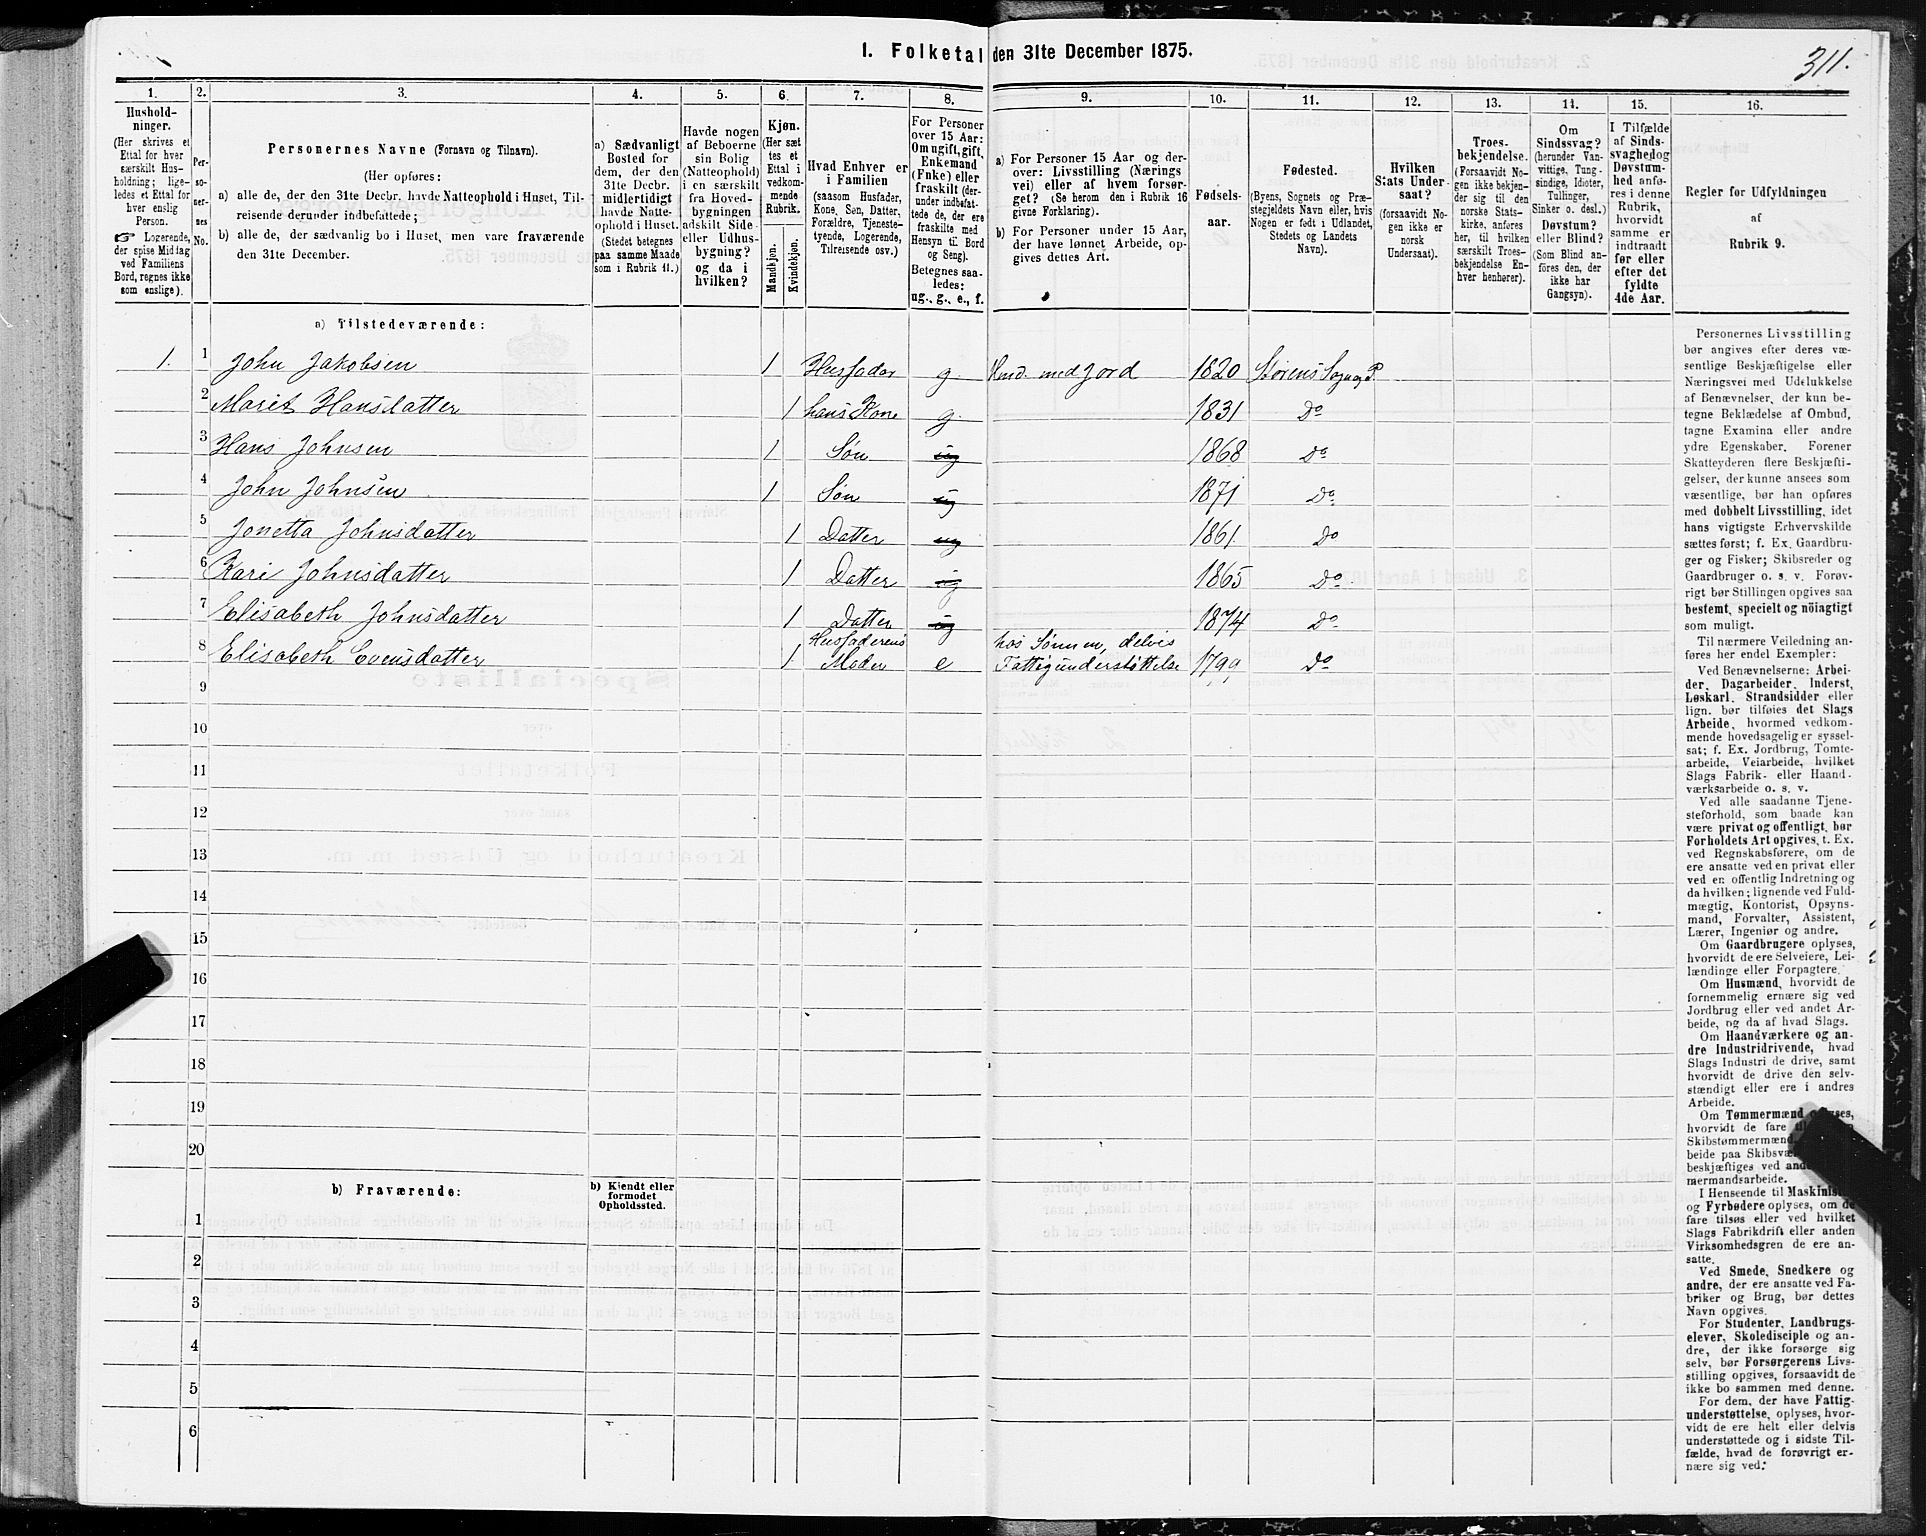 I. Folketal den 31te December 1875.
311.
1.
2.
3.
4.
5.
6.
7.
8.
9.
10.
11.
12.
13.
14.
15.
16.
Hushold-
ninger.
(Her skrives et
Ettal for hver
særskilt Hus-
holdning; lige-
ledes et Ettal for
hver enslig
Person.
☞ Logerende,
der spise Middag
ved Familiens
Bord, regnes ikke
som enslige).
Per-
so-
ner-
nes
No.
Personernes Navne (Fornavn og Tilnavn).
(Her opføres:
a) alle de, der den 31te Decbr. havde Natteophold i Huset, Til-
reisende derunder indbefattede;
b) alle de, der sædvanlig bo i Huset, men vare fraværende
den 31te December.
a) Sædvanligt
Bosted for
dem, der den
31te Decbr.
midlertidigt
havde Natte-
ophold i Huset.
(Stedet betegnes
paa samme Maade
som i Rubrik 11.)
Havde nogen
af Beboerne
sin Bolig
(Natteophold)
i en særskilt
fra Hoved-
bygningen
adskilt Side-
eller Udhus-
bygning?
og da i
hvilken?
Kjøn.
(Her sæt-
tes et
Ettal i
vedkom-
mende
Rubrik.
Mandkjøn.
Kvindekjøn.
Hvad Enhver er
i Familien
(saasom Husfader,
Kone, Søn, Datter,
Forældre, Tjeneste-
tyende, Logerende,
Tilreisende osv.)
For Personer
over 15 Aar:
Om ugift, gift,
Enkemand
(Enke) eller
fraskilt (der-
under indbefat-
tede de, der ere
fraskilte med
Hensyn til Bord
og Seng).
Betegnes saa-
ledes:
ug., g., e., f.
a) For Personer 15 Aar og der-
over: Livsstilling (Nærings-
vei) eller af hvem forsør-
get? (Se herom den i Rubrik 16
givne Forklaring).
b) For Personer under 15 Aar,
der have lønnet Arbeide, op-
gives dettes Art.
Fødsels-
aar.
Fødested.
(Byens, Sognets og Præ-
stegjeldets Navn eller, hvis
Nogen er født i Udlandet,
Stedets og Landets
Navn).
Hvilken
Stats Under-
saat?
(forsaavidt No-
gen ikke er
norsk
Undersaat).
Troes-
bekjendelse.
(Forsaavidt No-
gen ikke bekjen-
der sig til den
norske Stats-
kirke, anføres
her, til hvilken
særskilt Troes-
bekjendelse En-
hver henhører).
Om
Sindssvag?
(herunder Van-
vittige, Tung-
sindige, Idioter,
Tullinger,
Sinker o. desl.)
Døvstum?
eller Blind?
(Som Blind an-
føres den, der
ikke har
Gangsyn).
I Tilfælde
af Sinds-
svaghed og
Døvstum-
hed anfø-
res i denne
Rubrik,
hvorvidt
samme er
indtraadt
før eller
efter det
fyldte
4de Aar.
Regler for Udfyldningen
af
Rubrik 9.
a) Tilstedeværende:
1. 1 John Jakobsen 1 Husfader g Husm. med Jord 1820 Størens Sogn og P.
2 Marit Hansdatter 1 hans Kone g 1831 Do
3 Hans Johnsen 1 Søn ug 1868 Do
4 John Johnsen 1 Søn ug 1871 Do
5 Jonetta Johnsdatter 1 Datter ug 1861 Do
6 Kari Johnsdatter 1 Datter ug 1865 Do
7 Elisabeth Johnsdatter 1 Datter ug 1874 Do
8 Elisabeth Evensdatter 1 Husfaderens Moder e hos Sønnen, delvis Fattigunderstøttelse 1799 Do
9
10
11
12
13
14
15
16
17
18
19
20
b) Fraværende:
b) Kjendt eller
formodet
Opholdssted.
1
2
3
4
5
6
Personernes Livsstilling
bør angives efter deres væ-
sentlige Beskjæftigelse eller
Næringsvei med Udelukkelse
af Benævnelser, der kun be-
tegne Beklædelse af Ombud,
tagne Examina eller andre
ydre Egenskaber. Forener
Skatteyderen flere Beskjæfti-
gelser, der kunne ansees som
væsentlige, bør han opføres
med dobbelt Livsstilling, idet
hans vigtigste Erhvervskilde
sættes først; f. Ex. Gaardbru-
ger og Fisker; Skibsreder og
Gaardbruger o. s. v. Forøv-
rigt bør Stillingen opgives saa
bestemt, specielt og nöiagtigt
som muligt.
Til nærmere Veiledning an-
føres her endel Exempler:
Ved Benævnelserne: Arbei-
der, Dagarbeider, Inderst,
Løskarl, Strandsidder eller
lign. bør tilføies det Slags
Arbeide, hvormed vedkom-
mende hovedsagelig er syssel-
sat; f. Ex. Jordbrug, Tomte-
arbeide, Veiarbeide, hvilket
Slags Fabrik- eller Haand-
værksarbeide o. s. v.
Ved alle saadanne Tjene-
steforhold, som baade kan
være privat og offentligt, bør
Forholdets Art opgives, t. Ex.
ved Regnskabsførere, om de
ere ansatte ved en privat eller
ved en offentlig Indretning og
da hvilken; lignende ved Fuld-
mægtig, Kontorist, Opsyns-
mand, Forvalter, Assistent,
Lærer, Ingeniør og andre.
Om Gaardbrugere oplyses,
hvorvidt de ere Selveiere, Lei-
lændinge eller Forpagtere.
Om Husmænd, hvorvidt de
fornemmelig ernære sig ved
Jordbrug eller ved andet Ar-
beide, og da af hvad Slags.
Om Haandværkere og an-
dre Industridrivende, hvad
Slags Industri de drive, samt
hvorvidt de drive den selv-
stændigt eller ere i andres
Arbeide.
Om Tømmermænd oplyses,
hvorvidt de fare
Skibstømmermænd
beide paa
beskjæftiges ved
mermandsarbeide.
I Henseende til
og Fyrbødere oplyses, om de
fare tilsøs eller ved hvilket
Slags Fabrikdrift eller anden
Virksomhedsgren de ere an-
satte.
Ved Smede, Snedkere og
andre, der ere ansatte ved Fa-
briker og Brug, bør dettes
Navn opgives.
For Studenter, Landbrugs-
elever, Skoledisciple og an-
dre, der ikke forsørge sig
selv, bør Forsørgerens Livs-
stilling opgives, forsaavidt de
ikke bo sammen med denne.
For dem, der have Fattig-
understøttelse, oplyses, hvor-
vidt de ere helt eller delvis
understøttede og i sidste Til-
fælde, hvad de forøvrigt er-
nære sig ved.